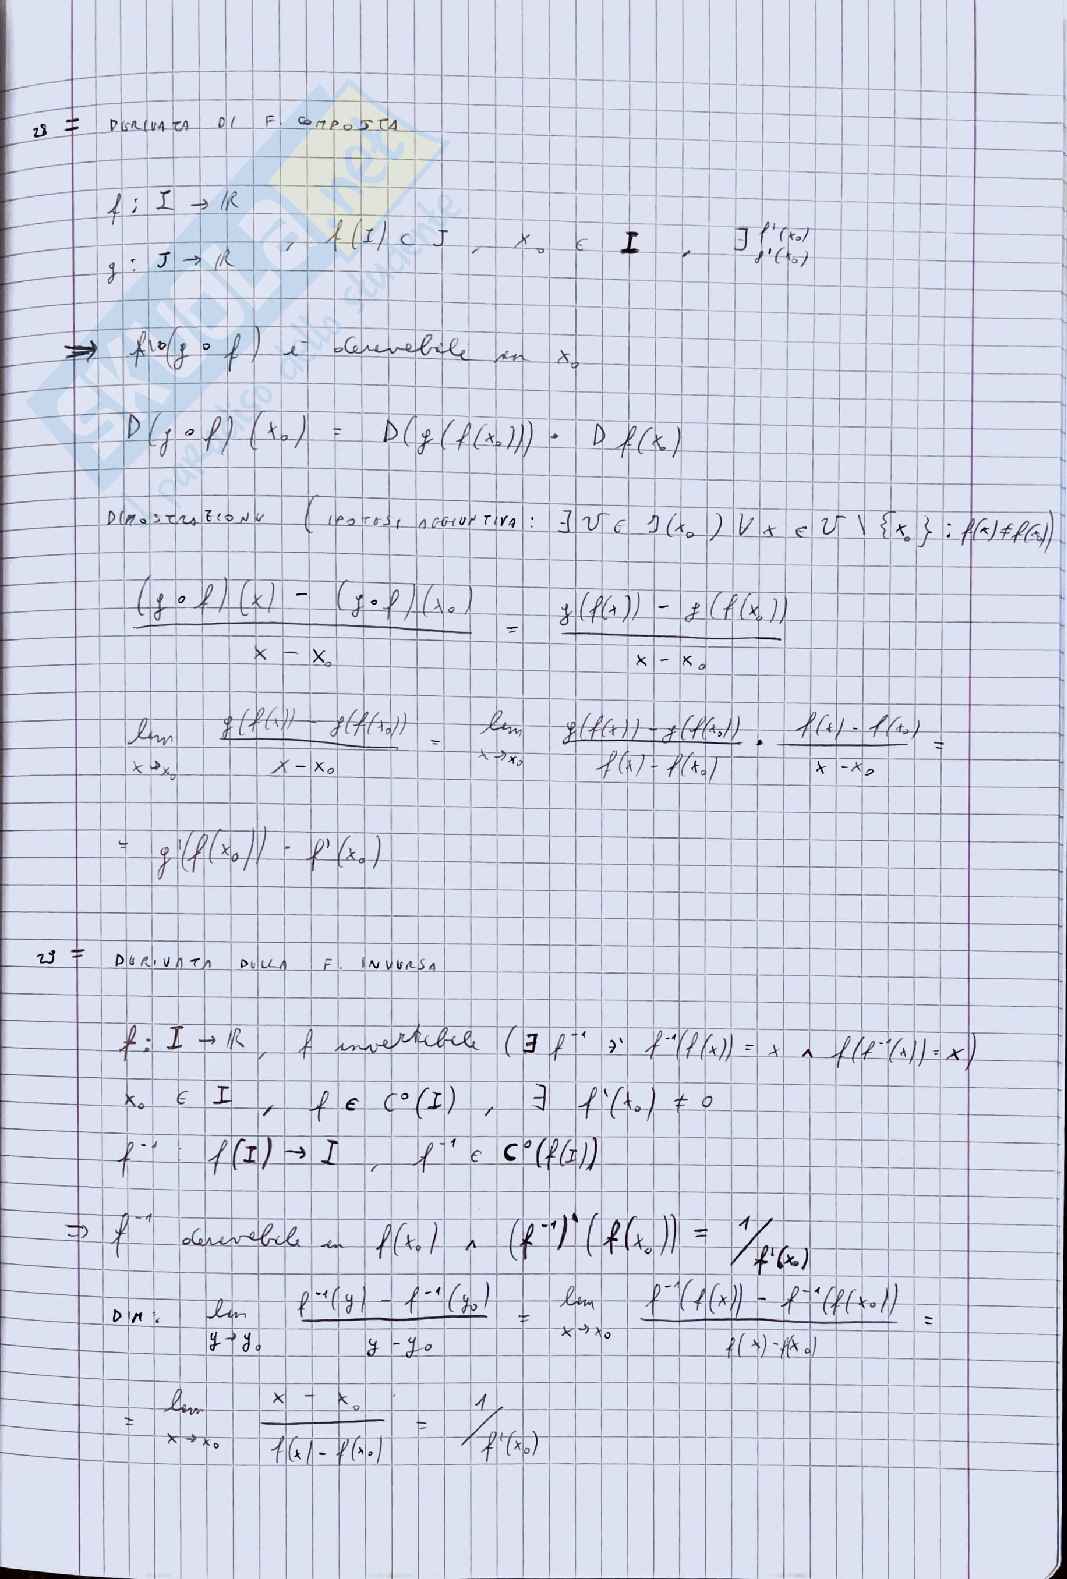 28 = DERIVATA DI F. COMPOSTA
f : I → ℝ
g : J → ℝ , f(I) ⊂ J , x₀ ∈ I , ∃ f'(x₀) g'(x₀)
⇒ (g ∘ f) è derivabile in x₀
D(g ∘ f)(x₀) = D(g(f(x₀))) · D f(x₀)
DIMOSTRAZIONE (IPOTESI AGGIUNTIVA: ∃ U ∈ I(x₀) ∀ x ∈ U \ {x₀} : f(x) ≠ f(x₀))
((g ∘ f)(x) − (g ∘ f)(x₀)) / (x − x₀) = (g(f(x)) − g(f(x₀))) / (x − x₀)
lim x→x₀ (g(f(x)) − g(f(x₀))) / (x − x₀) = lim x→x₀ (g(f(x)) − g(f(x₀))) / (f(x) − f(x₀)) · (f(x) − f(x₀)) / (x − x₀) =
= g'(f(x₀)) · f'(x₀)
29 = DERIVATA DELLA F. INVERSA
f : I → ℝ , f invertibile (∃ f⁻¹ : f⁻¹(f(x)) = x ∧ f(f⁻¹(x)) = x)
x₀ ∈ I , f ∈ C⁰(I) , ∃ f'(x₀) ≠ 0
f⁻¹ : f(I) → I , f⁻¹ ∈ C⁰(f(I))
⇒ f⁻¹ derivabile in f(x₀) ∧ (f⁻¹)'(f(x₀)) = 1/f'(x₀)
DIM: lim y→y₀ (f⁻¹(y) − f⁻¹(y₀)) / (y − y₀) = lim x→x₀ (f⁻¹(f(x)) − f⁻¹(f(x₀))) / (f(x) − f(x₀)) =
= lim x→x₀ (x − x₀) / (f(x) − f(x₀)) = 1/f'(x₀)
SKUOLA.net
il paradiso dello studente